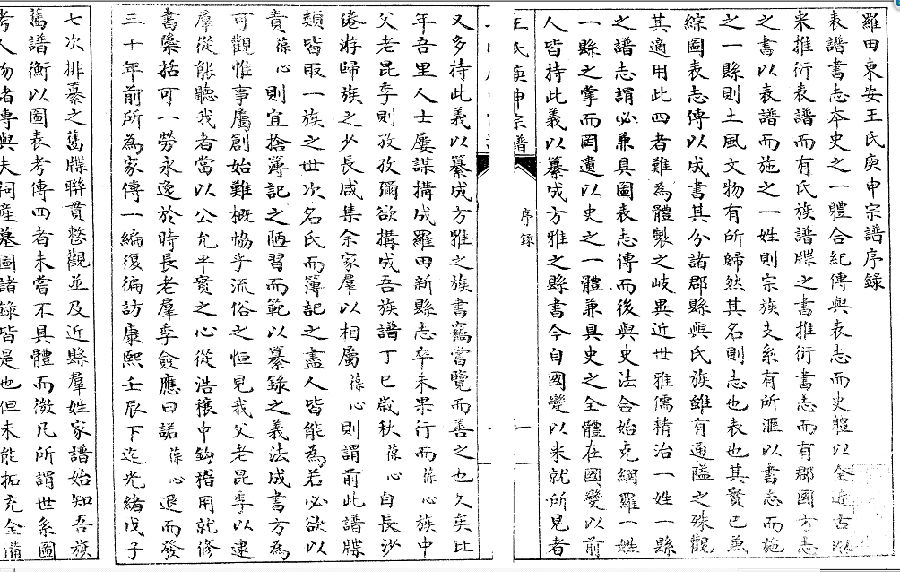 羅田東安王氏庚申宗譜序錄
表譜書志本史之一體合紀傳與表志而史體以全近古以
來推衍表譜而有氏族譜牒之書推衍書志而有郡國方志
之書以表譜而施之一姓則宗族支系有所滙以書志而施
之一縣則土風文物有所歸然其名則志也表也其實已兼
綜圖表志傳以成書其分諸郡縣與氏族雖有通隘之殊觀
其適用此四者難為體製之岐異近世雅儒精治一姓一縣
之譜志謂必兼具圖表志傳而後與史法合始克綱羅一姓
一縣之掌而罔遺以史之一體兼具史之全體在國變以前
人皆待此義以纂成方雅之縣書今自國變以來就所見者
王氏庚申宗譜
序錄
又多待此義以纂成方雅之族書竊嘗覽而善之也久矣比
年吾里人士屢謀構成羅田新縣志卒未果行而葆心族中
父老昆季則孜孜彌欲構成吾族譜丁巳歲秋葆心自長沙
倦游歸族之少長咸集余家羣以相屬葆心則謂前此譜牒
類皆取一族之世次名氏而簿記之盡人皆能為若必欲以
責葆心則宜捨簿記之陋習而範以纂錄之義法成書方為
可觀惟事屬創始難概恊乎流俗之恒見我父老昆季以逮
羣從能聽我者當以公允平實之心從浩穰中鉤稽用就修
書檃括可一勞永逸於時長老羣季僉應曰諾葆心退而發
三十年前所為家傳一編復徧訪康熙壬辰下迄光緒戊子
七次排纂之舊牒聯貫愸觀並及近縣羣姓家譜始知吾族
舊譜衡以圖表考傳四者未嘗不具體而微凡所謂世系圖
考人物者傳與夫祠產墓圖諸錄皆是也但未能拓充全備